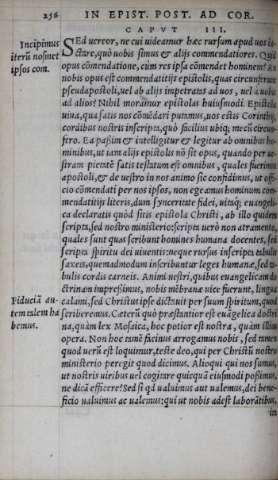 256 IN EPIST. POST. AD COR.
CAPVT III.
Incipimus
iterũ nosmet
ipsos com.
SEd uereor, ne cui uideamur hæc rursum apud uos ia-
ctare, quò uobis simus & alijs commendatiores. Quid
opus cõmendatione, cùm res ipsa cõmendet hominem? An
nobis opus est commendatitijs epistolis, quas circunferunt
pseudapostoli, uel ab alijs impetratas ad uos, uel à uobis
ad alios? Nihil moramur epistolas huiusmodi. Epistola
uiua, qua satis nos cõmẽdari putamus, uos estis Corinthij,
cordibus nostris inscripta, quò facilius ubiq; mecũ circun-
fero. Ea paßim & intelligitur & legitur ab omnibus ho-
minibus, ut iam alijs epistolis nõ sit opus, quando per ue-
stram pietatẽ satis testatum est omnibus, quales fuerimus
apostoli, & de uestro in nos animo sic confidimus, ut offi-
cio cõmendati per nos ipsos, non egeamus hominum com-
mendatitijs literis, dum synceritate fidei, uitæq; euangeli-
ca declaratis quòd sitis epistola Christi, ab illo quidem
scripta, sed nostro ministerio: scripta uerò non atramento,
quales sunt quas scribunt homines humana docentes, sed
scripta spiritu dei uiuentis: neque rursus inscripta tabulis
saxeis, quemadmodum inscribuntur leges humanæ, sed ta-
bulis cordis carneis. Animi uestri, quibus euangelicam do
ctrinam impreßimus, nobis mẽbranæ uice fuerunt, lingua
calami, sed Christus ipse dictauit per suum spiritum, quod
Fiduciã au-
tem talem ha
bemus.
scriberemus. Cæterũ quò præstantior est euãgelica doctri
na, quàm lex Mosaica, hoc potior est nostra, quàm illius
opera. Non hoc tamẽ facinus arrogamus nobis, sed tamen
quod uerũ est loquimur, teste deo, qui per Christũ nostro
ministerio peregit quod dicimus. Alioqui qui nos sumus,
ut nostris uiribus uel cogitare quicquã eiusmodi poßimus,
ne dicã efficere? Sed si qd ualuimus aut ualemus, dei bene-
ficio ualuimus ac ualemus: qui ut nobis adest laborãtibus,
in